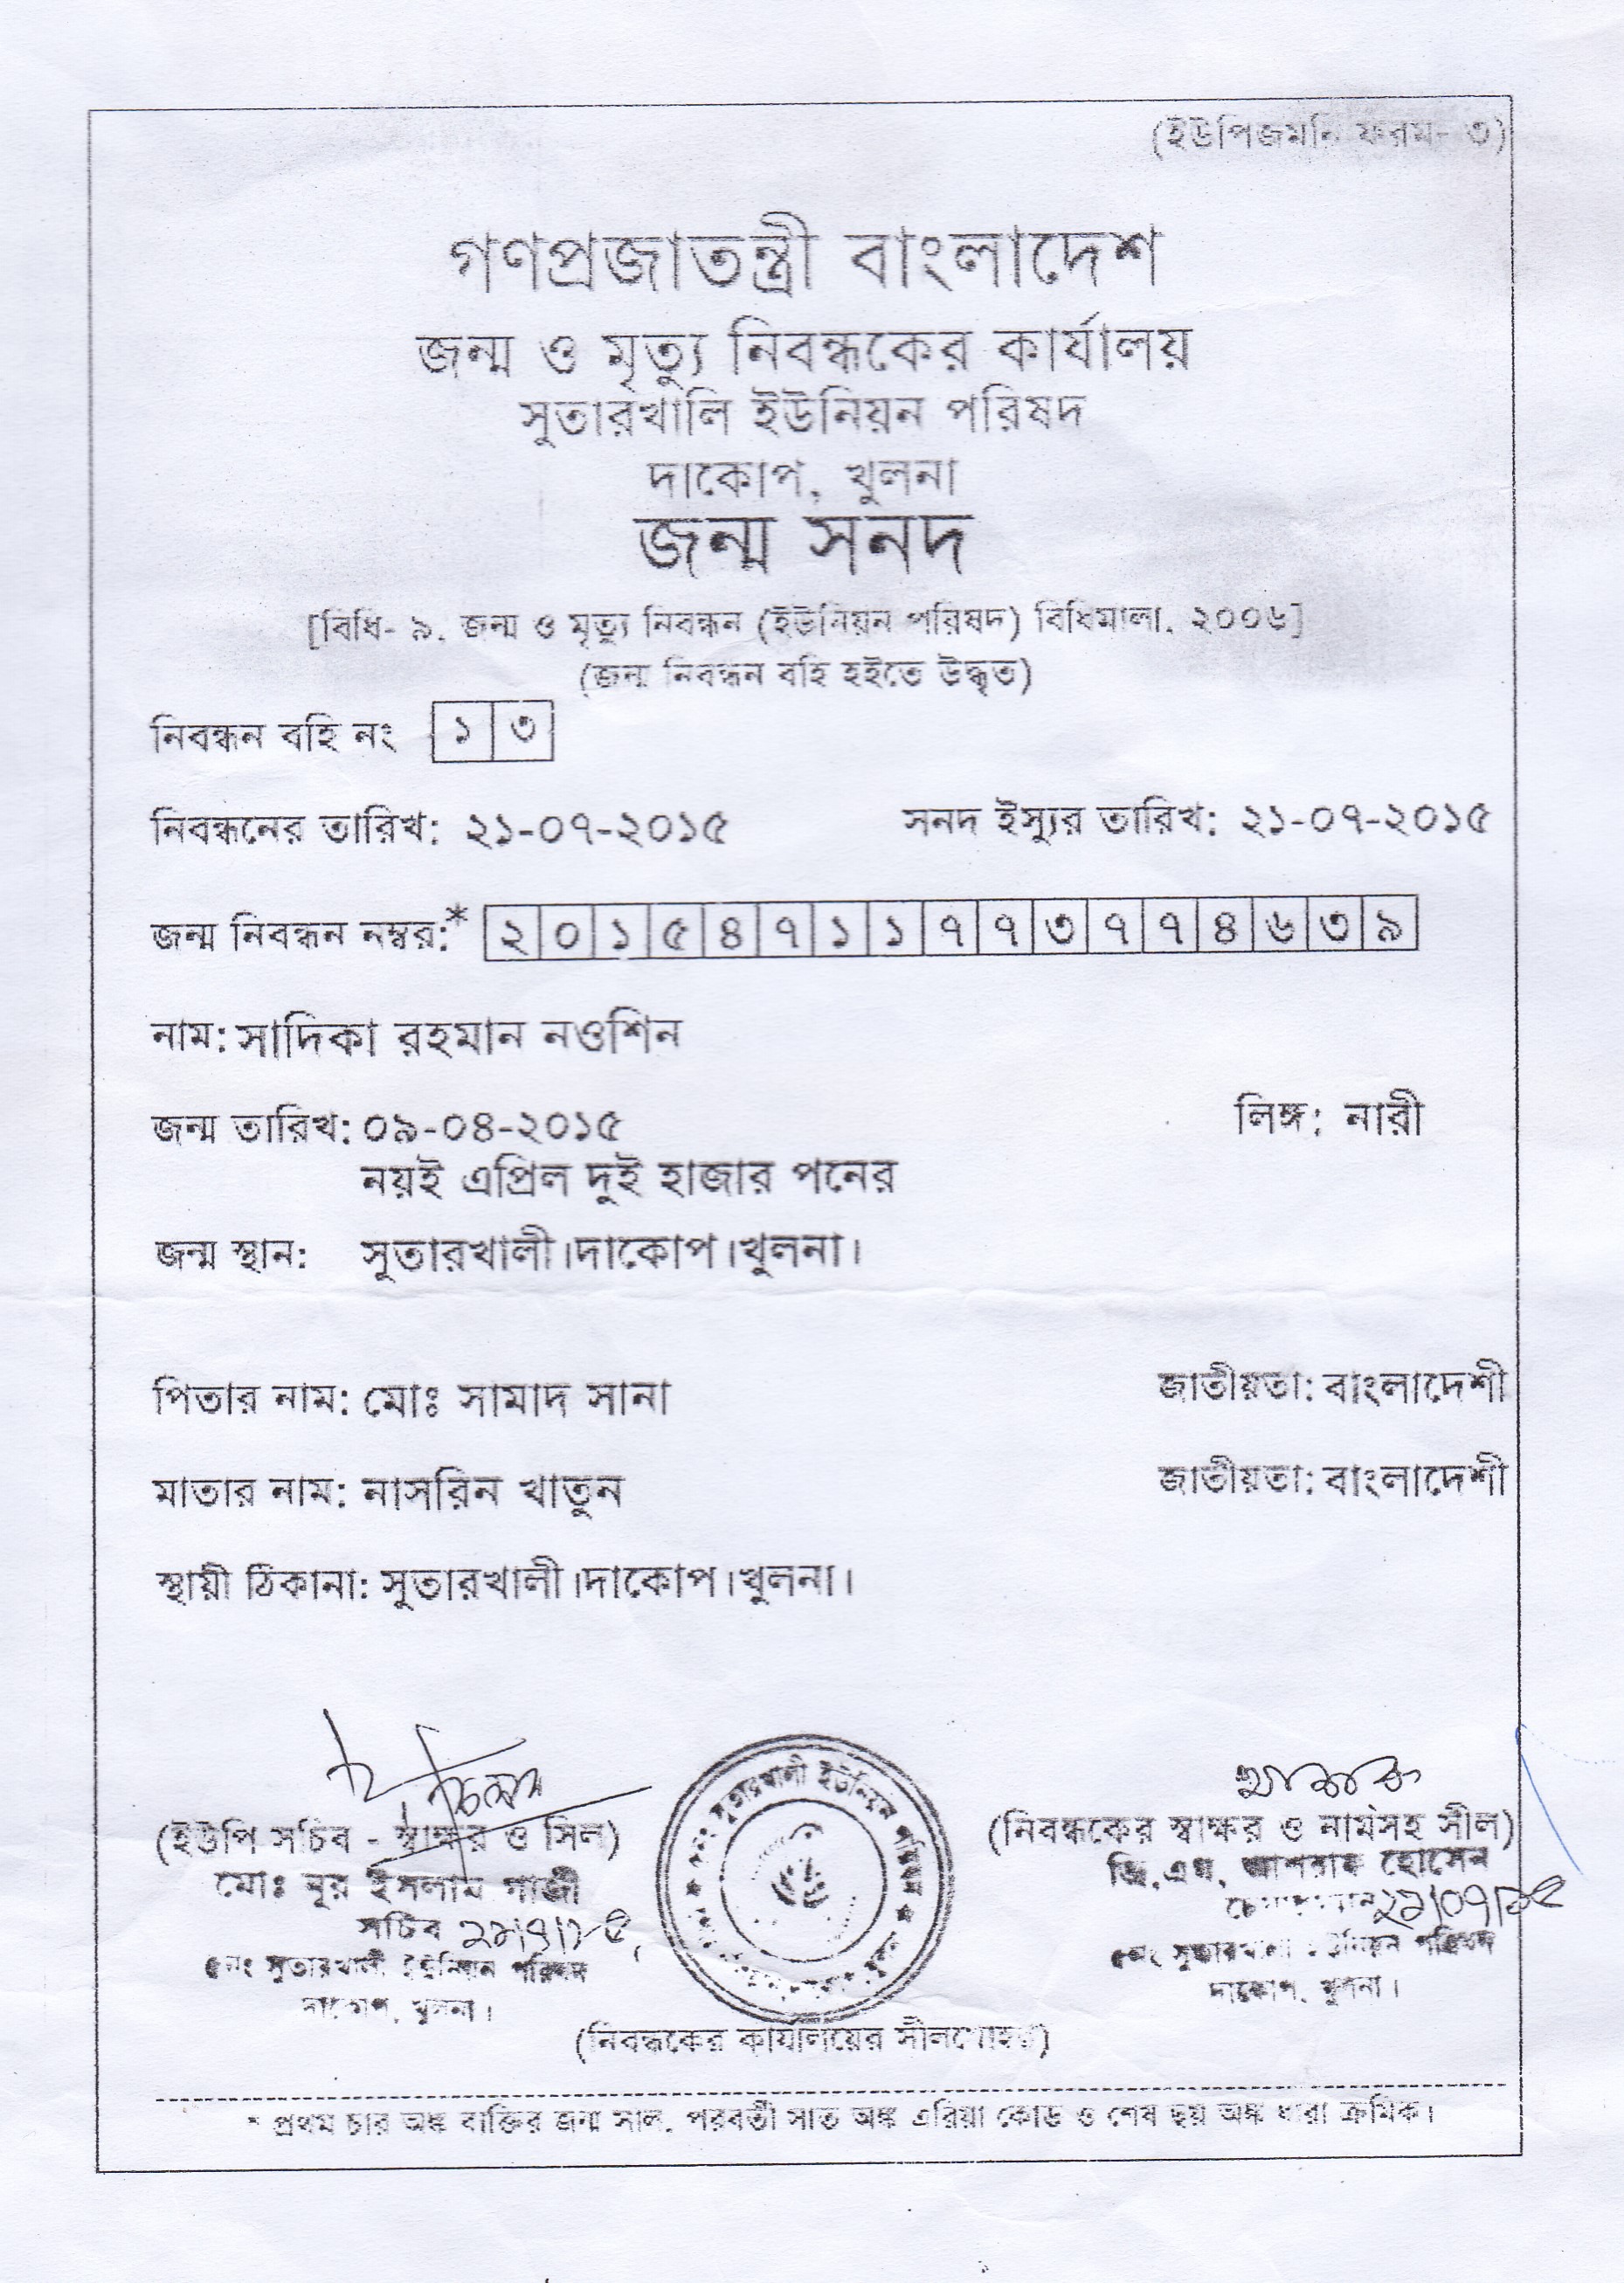 (ইউপিজমনি ফরম- ৩)
গণপ্রজাতন্ত্রী বাংলাদেশ
জন্ম ও মৃত্যু নিবন্ধকের কার্যালয়
সুতারখালি ইউনিয়ন পরিষদ
দাকোপ, খুলনা
জন্ম সনদ
[বিধি- ৯, জন্ম ও মৃত্যু নিবন্ধন (ইউনিয়ন পরিষদ) বিধিমালা, ২০০৬]
(জন্ম নিবন্ধন বহি হইতে উদ্ধৃত)
নিবন্ধন বহি নং ১ ৩
নিবন্ধনের তারিখ: ২১-০৭-২০১৫ সনদ ইস্যুর তারিখ: ২১-০৭-২০১৫
জন্ম নিবন্ধন নম্বর:* ২ ০ ১ ৫ ৪ ৭ ১ ১ ৭ ৭ ৩ ৭ ৭ ৪ ৬ ৩ ৯
নাম: সাদিকা রহমান নওশিন
জন্ম তারিখ: ০৯-০৪-২০১৫ লিঙ্গ: নারী
নয়ই এপ্রিল দুই হাজার পনের
জন্ম স্থান: সুতারখালী।দাকোপ।খুলনা।
পিতার নাম: মোঃ সামাদ সানা জাতীয়তা: বাংলাদেশী
মাতার নাম: নাসরিন খাতুন জাতীয়তা: বাংলাদেশী
স্থায়ী ঠিকানা: সুতারখালী।দাকোপ।খুলনা।
সুতারখালী ইউনিয়ন পরিষদ
(ইউপি সচিব - স্বাক্ষর ও সিল) (নিবন্ধকের স্বাক্ষর ও নামসহ সীল)
মোঃ নূর ইসলাম গাজী জি,এম, আশরাফ হোসেন
সচিব ২১/০৭/১৫
৫নং সুতারখালী ইউনিয়ন পরিষদ ৫নং সুতারখালী ইউনিয়ন পরিষদ
দাকোপ, খুলনা। দাকোপ, খুলনা।
(নিবন্ধকের কার্যালয়ের সীলমোহর)
* প্রথম চার অঙ্ক ব্যক্তির জন্ম সাল, পরবর্তী সাত অঙ্ক এরিয়া কোড ও শেষ ছয় অঙ্ক ধারা ক্রমিক।